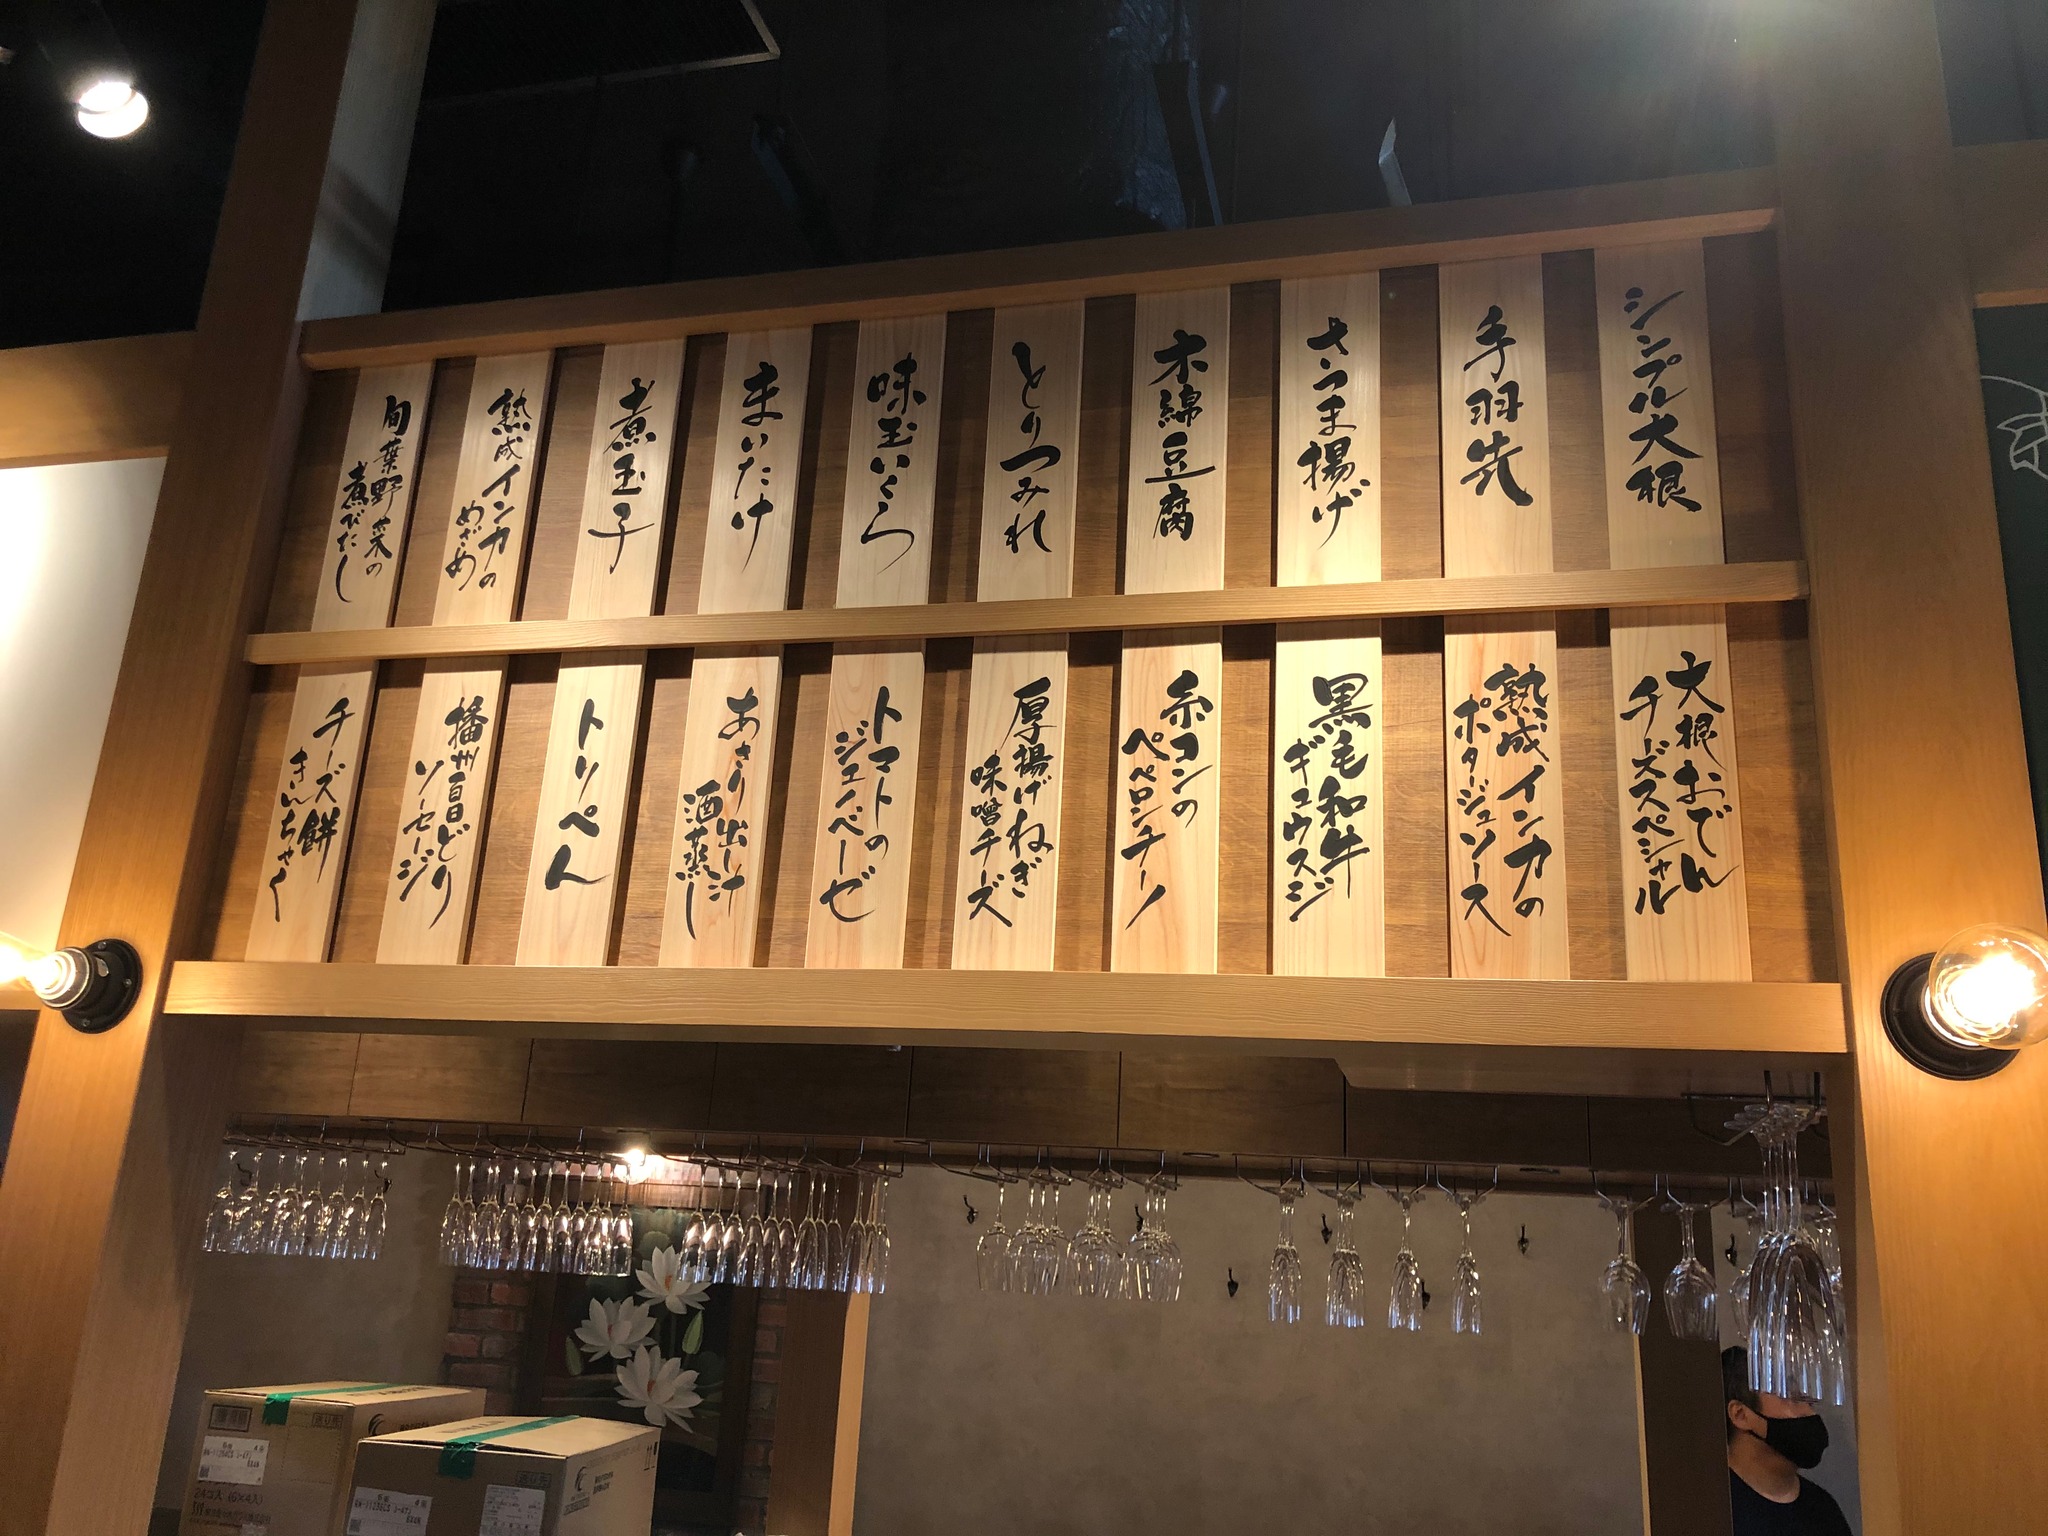 シンプル大根
手羽先
さつま揚げ
木綿豆腐
とりつみれ
味玉いくら
まいたけ
煮玉子
熟成インカの
めざめ
旬葉野菜の
煮びたし
大根おでん
チーズスペシャル
熟成インカの
ポタージュソース
黒毛和牛
ギュウスジ
糸コンの
ペペロンチーノ
厚揚げねぎ
味噌チーズ
トマトの
ジェノベーゼ
あさり出し汁
酒蒸し
トリペん
播州百日どり
ソーセージ
チーズ餅
きんちゃく
24コ入 (6×4入)